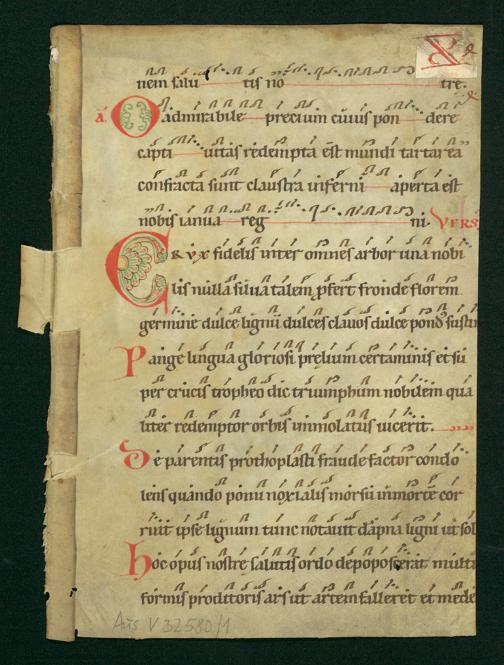 nem salu tis no tre.
a. O admirabile precium cuius pon dere
capti uitas redempta est mundi tartarea
confracta sunt claustra inferni aperta est
nobis ianua reg ni. VERS
CRVX fidelis inter omnes arbor una nobi
lis nulla silua talem profert fronde florem
germine dulce lignum dulces clauos dulce pondus susti
Pange lingua gloriosi prelium certaminis et su
per crucis tropheo dic triumphum nobilem qua
liter redemptor orbis immolatus uicerit.
De parentis prothoplasti fraude factor condo
lens quando pomi noxialis morsu in morte cor
ruit ipse lignum tunc notauit dampna ligni ut sol
hoc opus nostre salutis ordo depoposcerat multi
formis proditoris ars ut artem falleret et mede
Aus V 32580/1